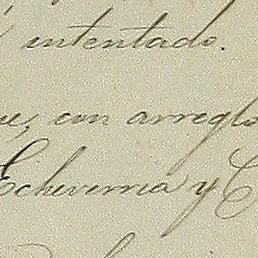 intentado.
ue, con arreglo
Echeverria y C